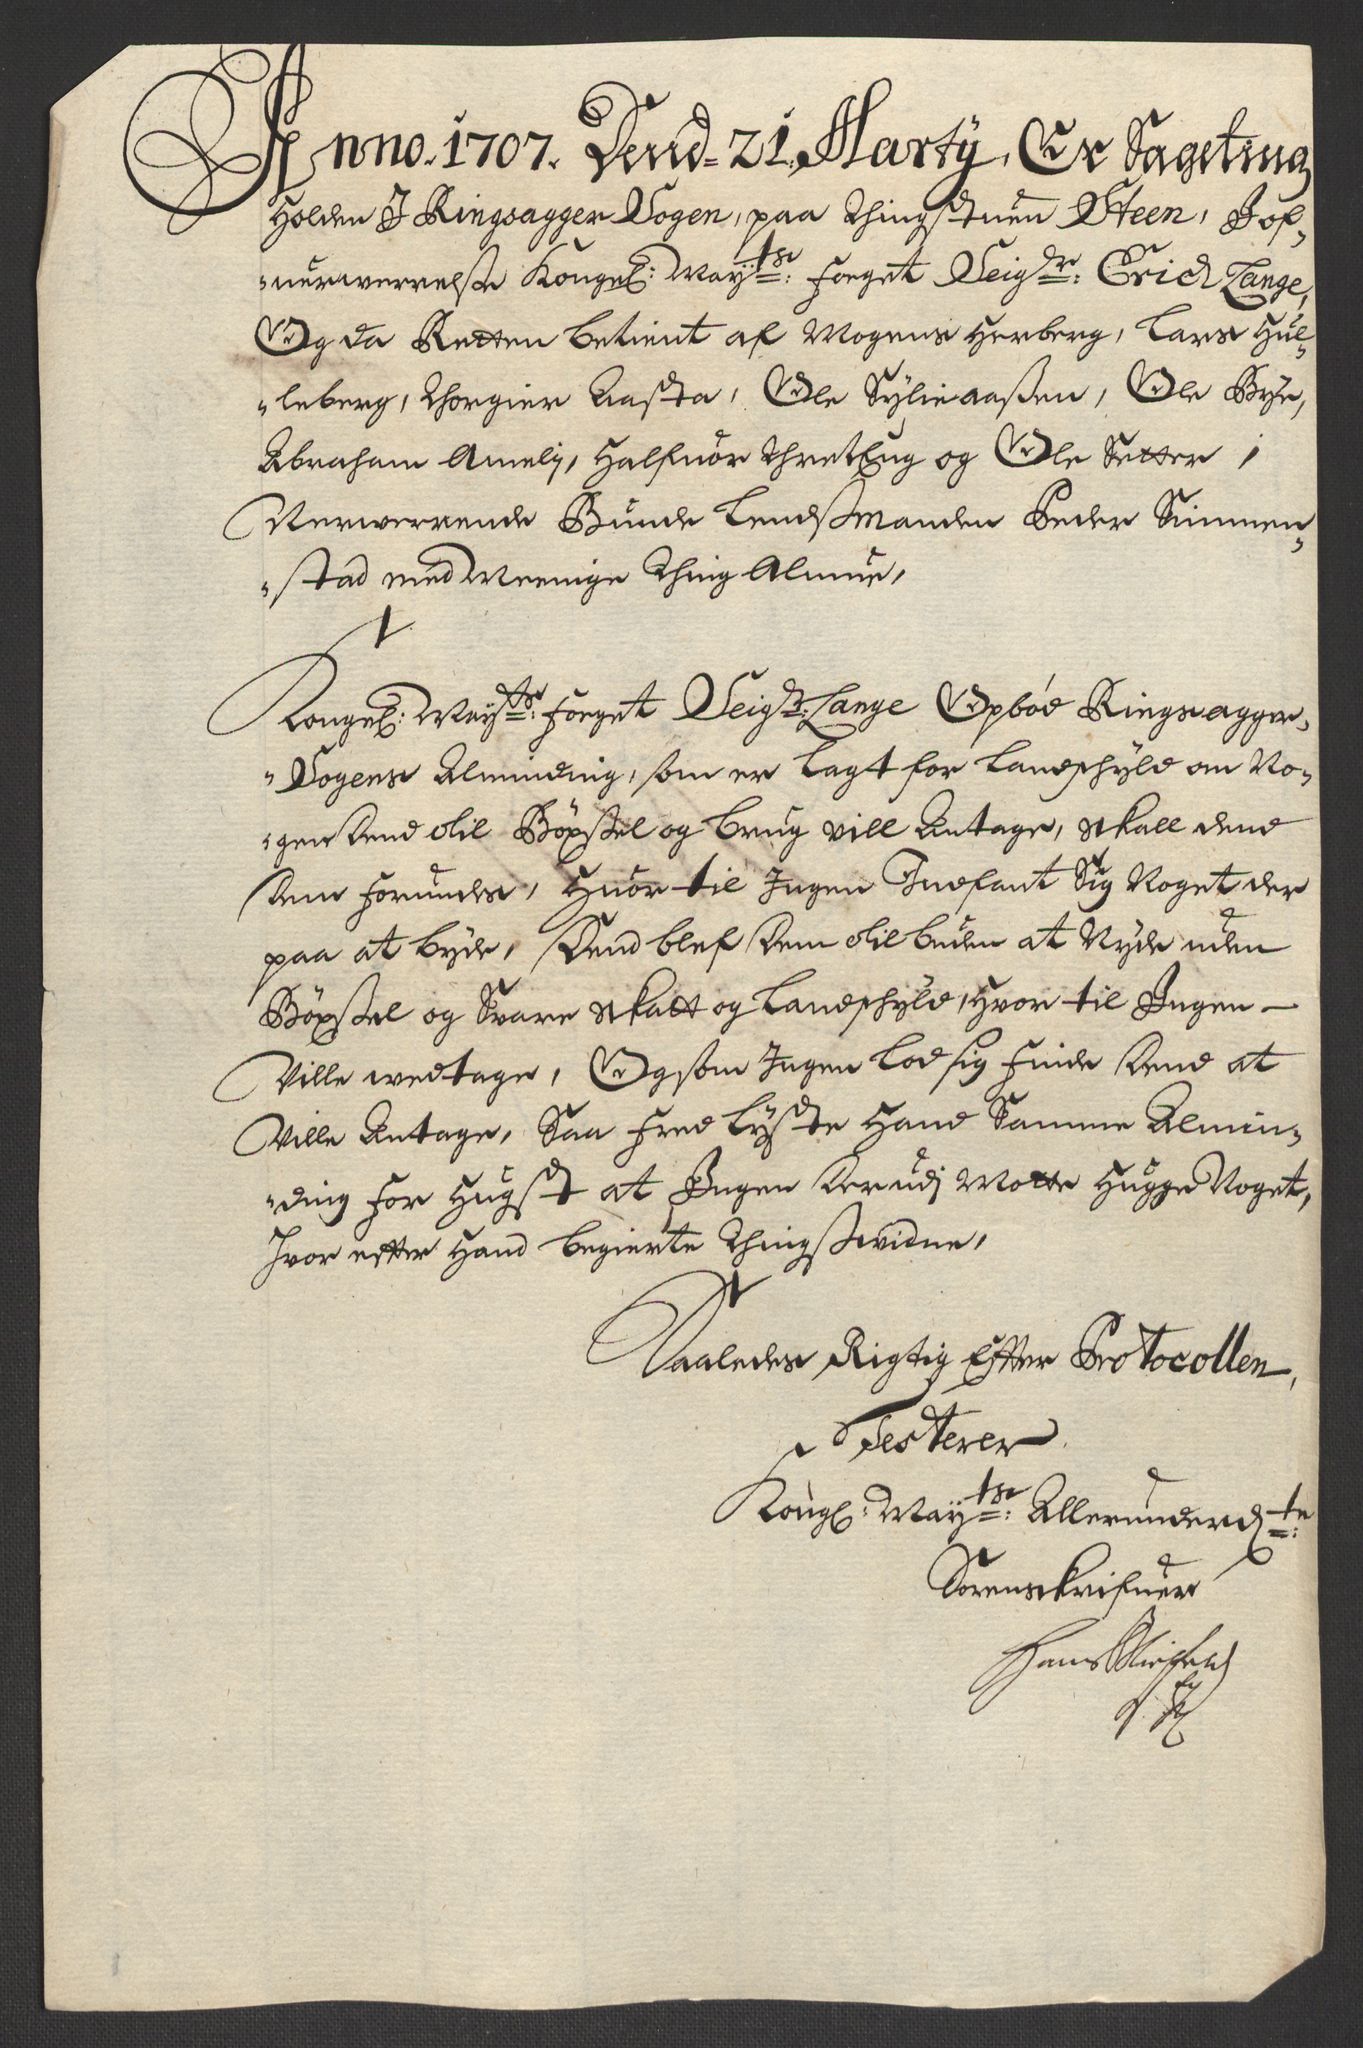 Anno. 1707. Dend 21 Marty, Er Sageting
Holden J Ringsagger Sogen, paa Thingstuen Steen, J of-
-uerwerrelse Kongel: May:ts: Foeget Seig:r: Erich Lange,
Og da Retten betient af Mogens Herberg, Lars Hul-
-leberg, Thorgier Aasta, Ole Sylieaasen, Ole Bye,
Abraham Amely, Halfuor Threteug og Ole Setter,
Nerwerrende Bunde Lendsmanden Peder Simmen-
-stad med Meenige Thing Almue,
Kongel: May:ts: Foeget Seig:r: Lange Opbød Ringsagger-
-Sogens Alminding, som er Lagt for Landschyld om No-
-gen dend til Bøxsel og brug vill Antage, skall dend
dem forundes, Huor til Ingen Indfant Sig Noget der
paa at byde, Dend blef dem tilbuden at Nyde uden
Bøxsel og Svare skatt og Landschyld, Hvor til Ingen
Ville wedtage, Og som Ingen lod sig finde dend at
Ville Antage, Saa fred lyste Hand Samme Almin-
-ding for Hugst at Ingen derudj Motte Hugge Noget,
Hvor effter Hand begierte Thingswidne,
Saaledes Rigtig Effter Protocollen,
Testerer
Kongl: May:ts: Allerunderd:te:
Sorenskrifuer
Hans